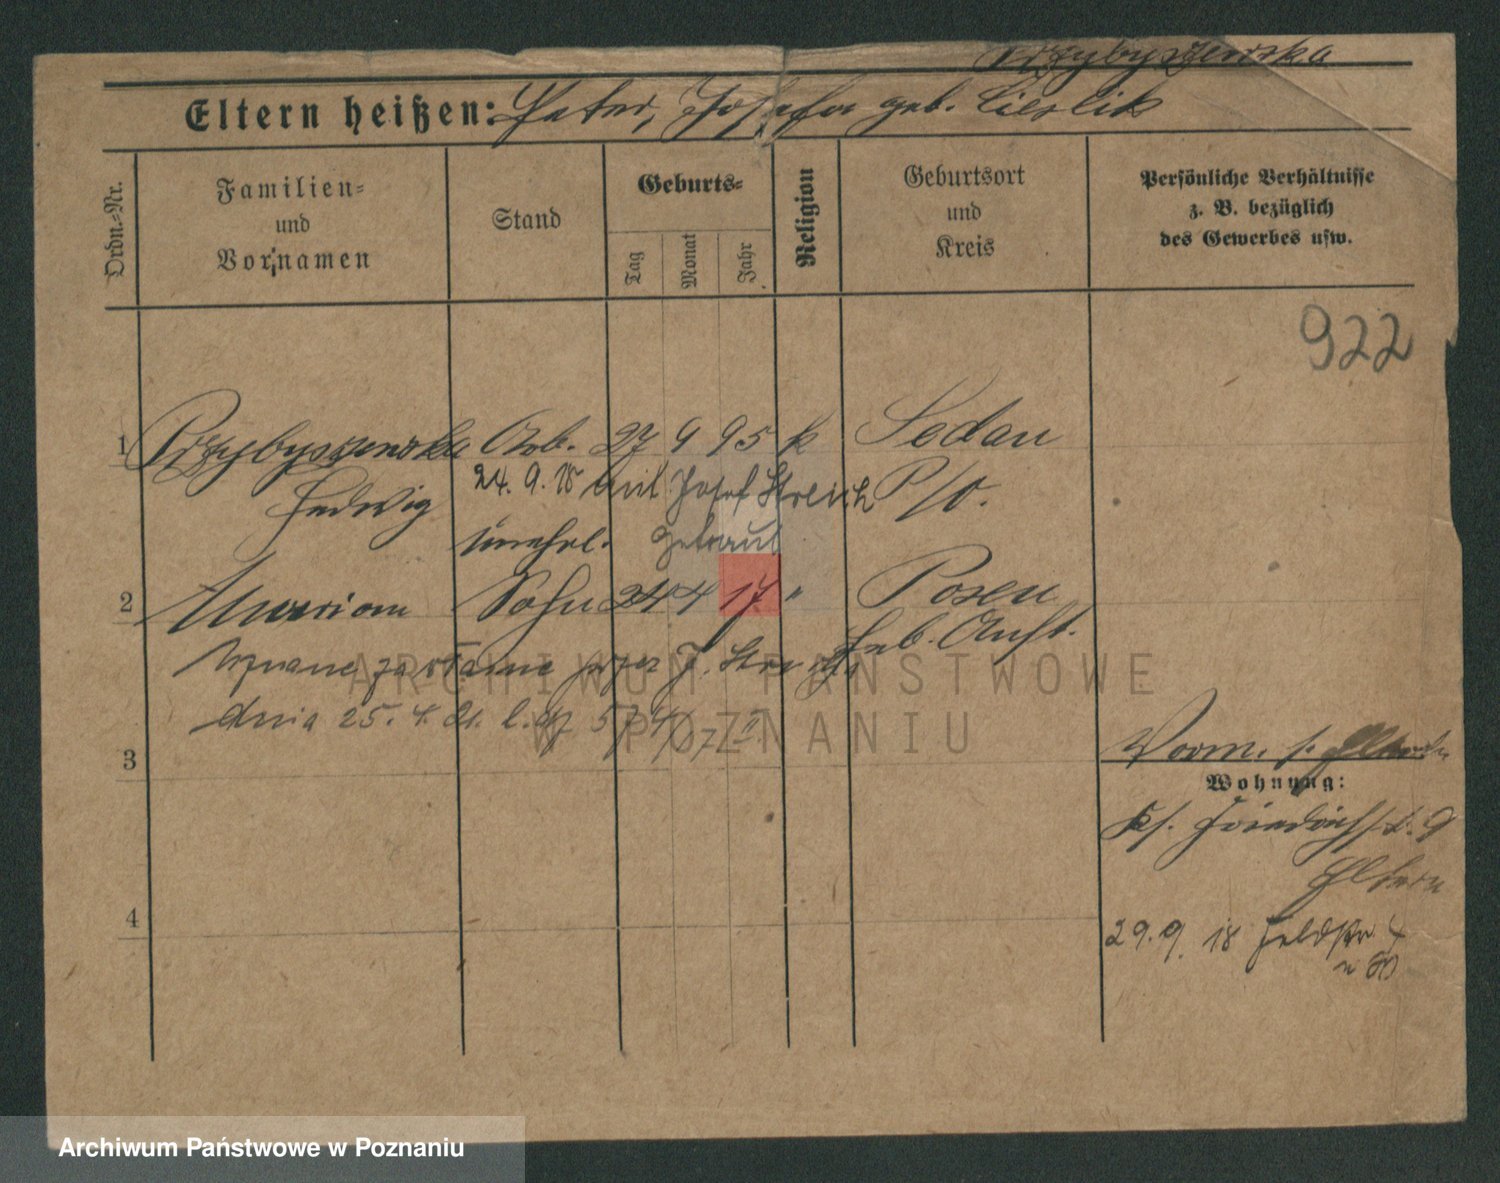 Przybyszewska
Eltern heißen: Peter, Josefa geb. Cieslik
Ordn.-Nr.
Familien- und Vornamen
Stand
Geburts-
Tag
Monat
Jahr
Religion
Geburtsort und Kreis
Persönliche Verhältnisse z. B. bezüglich des Gewerbes usw.
922
1 Przybyszewska Arb. 27 9 95 k Sedan
Hedwig 24. 9. 18 mit Josef Strenk P/O.
unehel. getraut
2 Maryiom Sohn 24 4 17 " Posen
Uznane zostanie przez J. Geb. Anst.
dnia 25. 4. 21. l. 574/17 II
3
Vorm. s.
Wohnung:
Kf. Friedrichstr. 9
Eltern
4
29. 9. 18 Feldstr. 4
ARCHIWUM PAŃSTWOWE
W POZNANIU
Archiwum Państwowe w Poznaniu